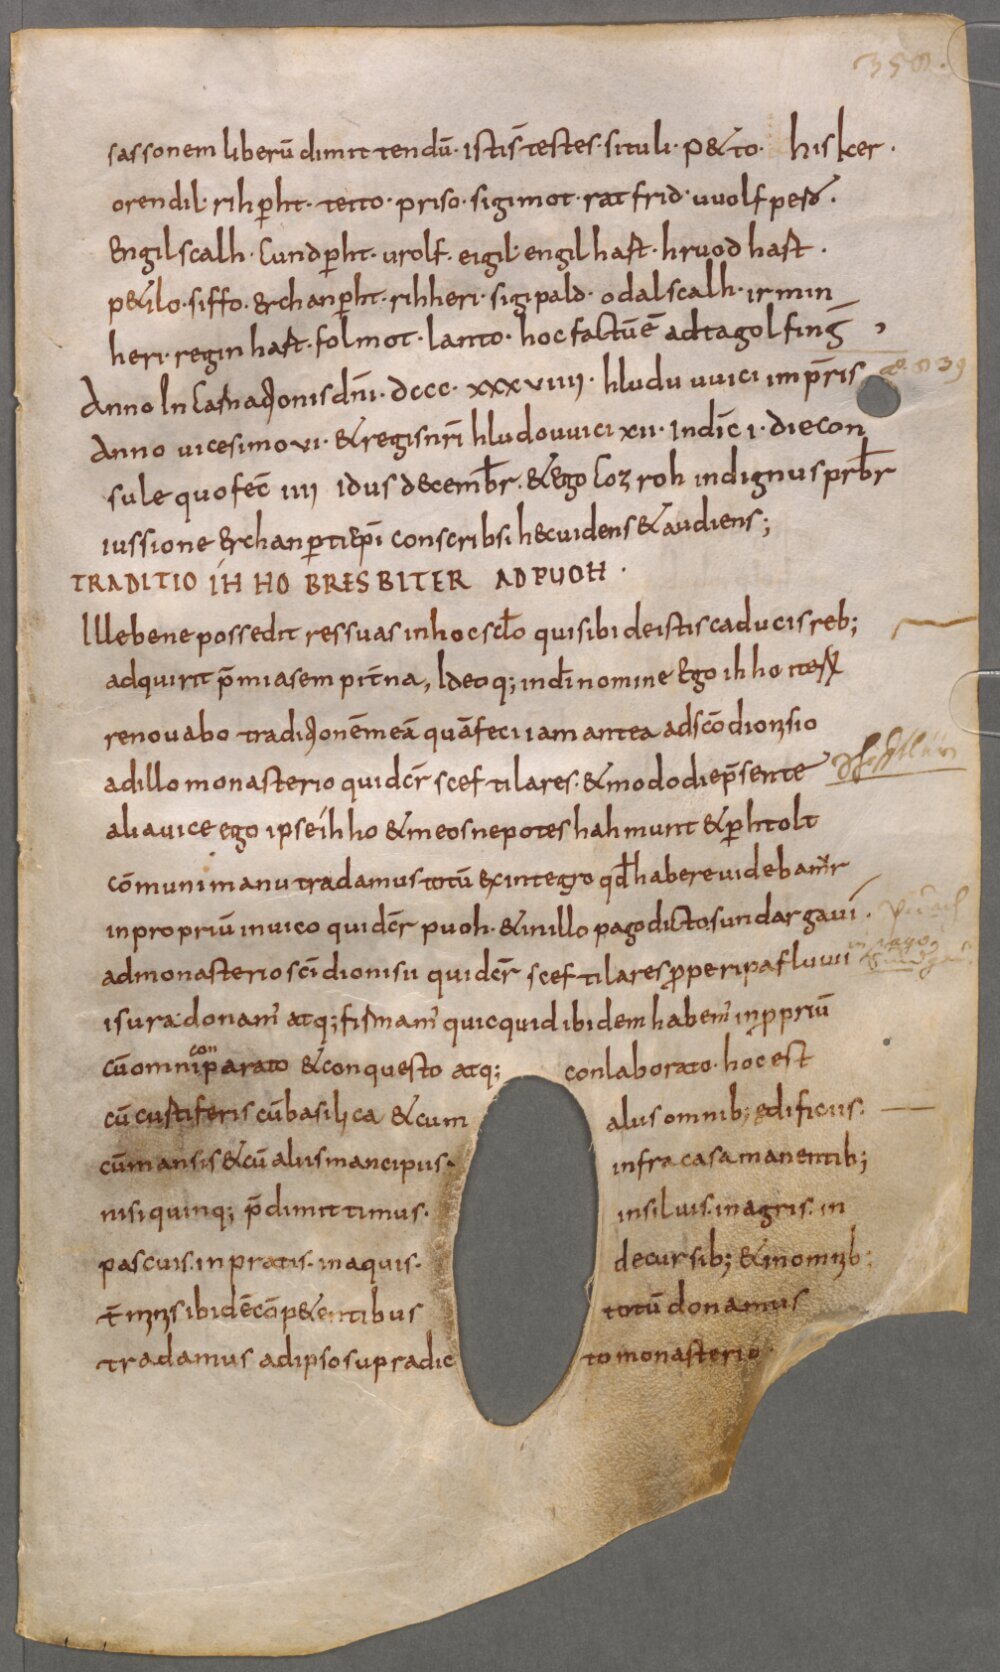 358.
sassonem liberū dimittendū· istis̄ testes· situli· p&to· hisker·
orendil· rihp̱ht· tetto· priso· sigimot· ratfrid· uuolfpero·
Engilscalh· Cundp̱ht· urolf· eigil· engilhast· hruodhast·
p&ilo· siffo· erchanp̱ht· rihheri· sigipald· odalscalh· irmin
heri· reginhast· folmot· lanto· hoc factū ē ad tagolfinḡ
Anno Incarnationis dn̄i· dccc· xxxviiii· hludu uuici imp̄ris
Anno uicesimo vi· & regis nr̄i hludouuici xii· Indic̄ i· die con
sule quo fec̄ iiii idus decemb̄r· & ego Cozroh indignus prb̄r
iussione erchanp̱ti ep̄i conscribsi hec uidens & audiens;
TRADITIO IHHO BRESBITER AD PUOH·
Ille bene possedit res suas in hoc scl̄o qui sibi de istis caducis reb;
adquirit p̄mia sempit̄na, Ideoq; in dī nomine Ego ihho
renouabo traditionē meā quā feci iam antea ad sc̄o dionisio
ad illo monasterio qui dc̄r sceftilares· & modo die p̄sente
alia uice ego ipse ihho & meos nepotes hahmunt & p̱htolt
cōmuni manu tradamus totū ex integro qd̄ habere uidebamr̄
in propriū in uico qui dc̄r puoh· & in illo pago dicto sundargauī·
ad monasterio sc̄i dionisii qui dc̄r sceftilares ꝓpe ripa fluuii
isura· donam̄ atq; firmam̄ quicquid ibidem habem̄ in ꝓpriū
cū omni conparato & conquesto atq; conlaborato· hoc est
cū custiferis cū basilica & cum aliis omnib; ędificiis·
cū mansis & cū aliis mancipiis· infra casa manentib;
nisi quinq; p̄dimittimus· in siluis· in agris· in
pascuis· in pratis· in aquis· decursib; & in omnib;
t̄minis ibidē cōp&entibus totū donamus
tradamus ad ipso supradic to monasterio·